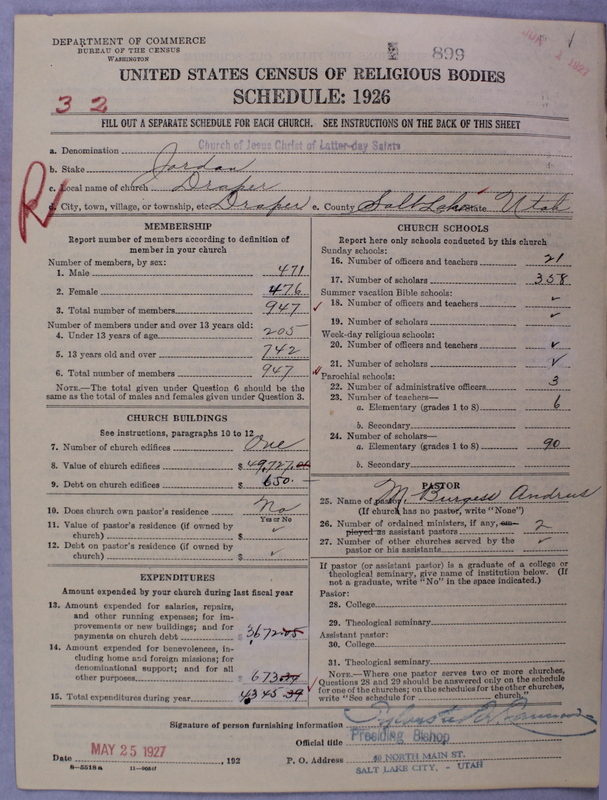 DEPARTMENT OF COMMERCE
BUREAU OF THE CENSUS
WASHINGTON
899
1
UNITED STATES CENSUS OF RELIGIOUS BODIES
32
SCHEDULE: 1926
FILL OUT A SEPARATE SCHEDULE FOR EACH CHURCH. SEE INSTRUCTIONS ON THE BACK OF THIS SHEET
a. Denomination Church of Jesus Christ of Latter-day Saints
b. Stake Jordan
c. Local name of church Draper
R
d. City, town, village, or township, etc Draper e. County Salt Lake State Utah
MEMBERSHIP
Report number of members according to definition of
member in your church
Number of members, by sex:
1. Male 471
2. Female 476
3. Total number of members 947
Number of members under and over 13 years old:
4. Under 13 years of age 205
5. 13 years old and over 742
6. Total number of members 947
NOTE.—The total given under Question 6 should be
same as the total of males and females given under Question 3.
CHURCH BUILDINGS
See instructions, paragraphs 10 to 12
7. Number of church edifices One
8. Value of church edifices $ 49,727.00
9. Debt on church edifices $ 650.
10. Does church own pastor's residence No
Yes or No
11. Value of pastor's residence (if owned by
church) $ ✓
12. Debt on pastor's residence (if owned by
church) $ ✓
EXPENDITURES
Amount expended by your church during last fiscal year
13. Amount expended for salaries, repairs,
and other running expenses; for im-
provements or new buildings; and for
payments on church debt $ 3672
14. Amount expended for benevolences, in-
cluding home and foreign missions; for
denominational support; and for all
other purposes $ 673
15. Total expenditures during year 4345
CHURCH SCHOOLS
Report here only schools conducted by this church
Sunday schools:
16. Number of officers and teachers 21
17. Number of scholars 358
Summer vacation Bible schools:
18. Number of officers and teachers ✓
19. Number of scholars ✓
Week-day religious schools:
20. Number of officers and teachers ✓
21. Number of scholars ✓
Parochial schools:
22. Number of administrative officers 3
23. Number of teachers—
a. Elementary (grades 1 to 8) 6
b. Secondary
24. Number of scholars—
a. Elementary (grades 1 to 8) 90
b. Secondary
PASTOR
25. Name of pastor M Burgess Andrus
(If church has no pastor, write "None")
26. Number of ordained ministers, if any, em-
ployed as assistant pastors 2
27. Number of other churches served by the
pastor or his assistants ✓
If pastor (or assistant pastor) is a graduate of a college or
theological seminary, give name of institution below. (If
not a graduate, write "No" in the space indicated.)
Pastor:
28. College
29. Theological seminary
Assistant pastor:
30. College
31. Theological seminary
NOTE.—Where one pastor serves two or more churches,
Questions 28 and 29 should be answered only on the schedule
for one of the churches; on the schedules for the other churches,
write "See schedule for church."
Signature of person furnishing information
Official title Presiding Bishop
Date MAY 25 1927, 192 P. O. Address 40 NORTH MAIN ST.
SALT LAKE CITY, - UTAH